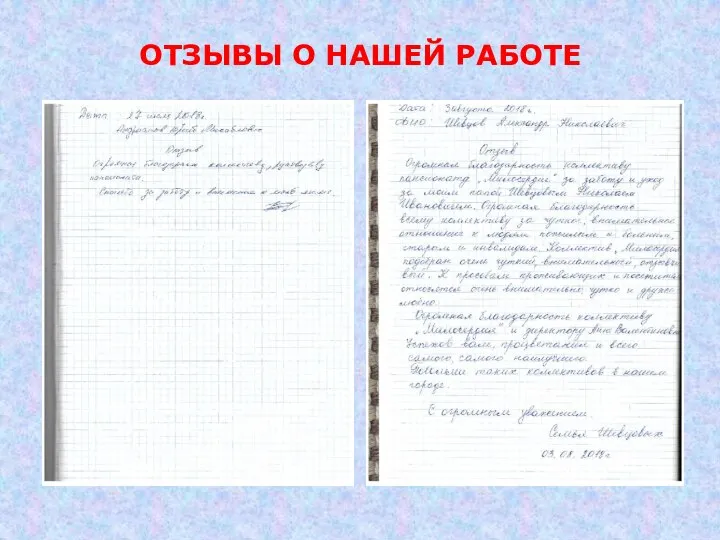 ОТЗЫВЫ О НАШЕЙ РАБОТЕ
Дата 27 июля 2018г.
Юрий Михайлович
Отзыв
Огромная благодарность коллективу
пансионата.
Спасибо за заботу и внимание к моей маме.
Дата: 3 августа 2018г.
ФИО: Шевцов Александр Николаевич
Отзыв
Огромная благодарность коллективу
пансионата „Милосердие" за заботу и уход
за моим папой Шевцовым Николаем
Ивановичем. Огромная благодарность
всему коллективу за чуткое, внимательное
отношение к людям пожилым и больным,
старым и инвалидам. Коллектив „Милосердия
подобран очень чуткий, внимательный, отзывчи
вый. К просьбам проживающих и посетителей
относятся очень внимательно чутко и друже
любно.
Огромная благодарность коллективу
„Милосердия" и директору Анне Валентиновне
Успехов вам, процветания и всего
самого, самого наилучшего.
Побольше таких коллективов в нашем
городе.
С огромным уважением.
Семья Шевцовых
03.08.2018г